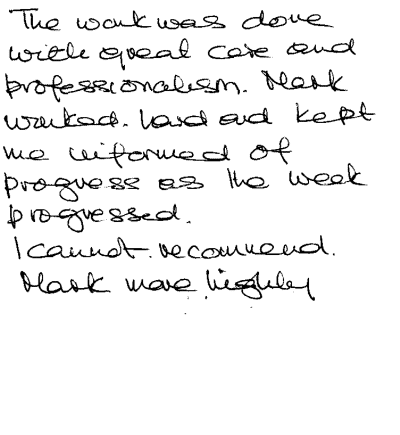 The work was done
with great care and
professionalism. Mark
worked. hard and kept
me informed of
progress as the week
progressed.
I cannot. recommend.
Mark more highly